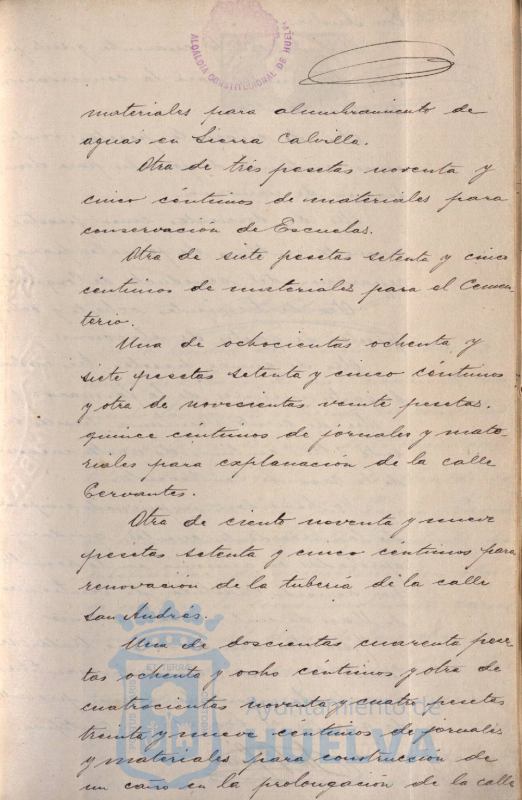 ALCALDIA CONSTITUCIONAL DE HUELVA
materiales para alumbramiento de
aguas en Sierra Calvilla.
Otra de tres pesetas noventa y
cinco céntimos de materiales para
conservación de Escuelas.
Otra de siete pesetas setenta y cinco
céntimos de materiales para el Cemen-
terio.
Una de ochocientas ochenta y
siete pesetas setenta y cinco céntimos
y otra de novecientas veinte pesetas
quince céntimos de jornales y mate-
riales para explanación de la calle
Cervantes.
Otra de ciento noventa y nueve
pesetas setenta y cinco céntimos para
renovación de la tubería de la calle
San Andrés.
Una de doscientas cuarenta pese-
tas ochenta y ocho céntimos y otra de
cuatrocientas noventa y cuatro pesetas
treinta y nueve céntimos de jornales
y materiales para construcción de
un caño en la prolongación de la calle
Ayuntamiento de
HUELVA